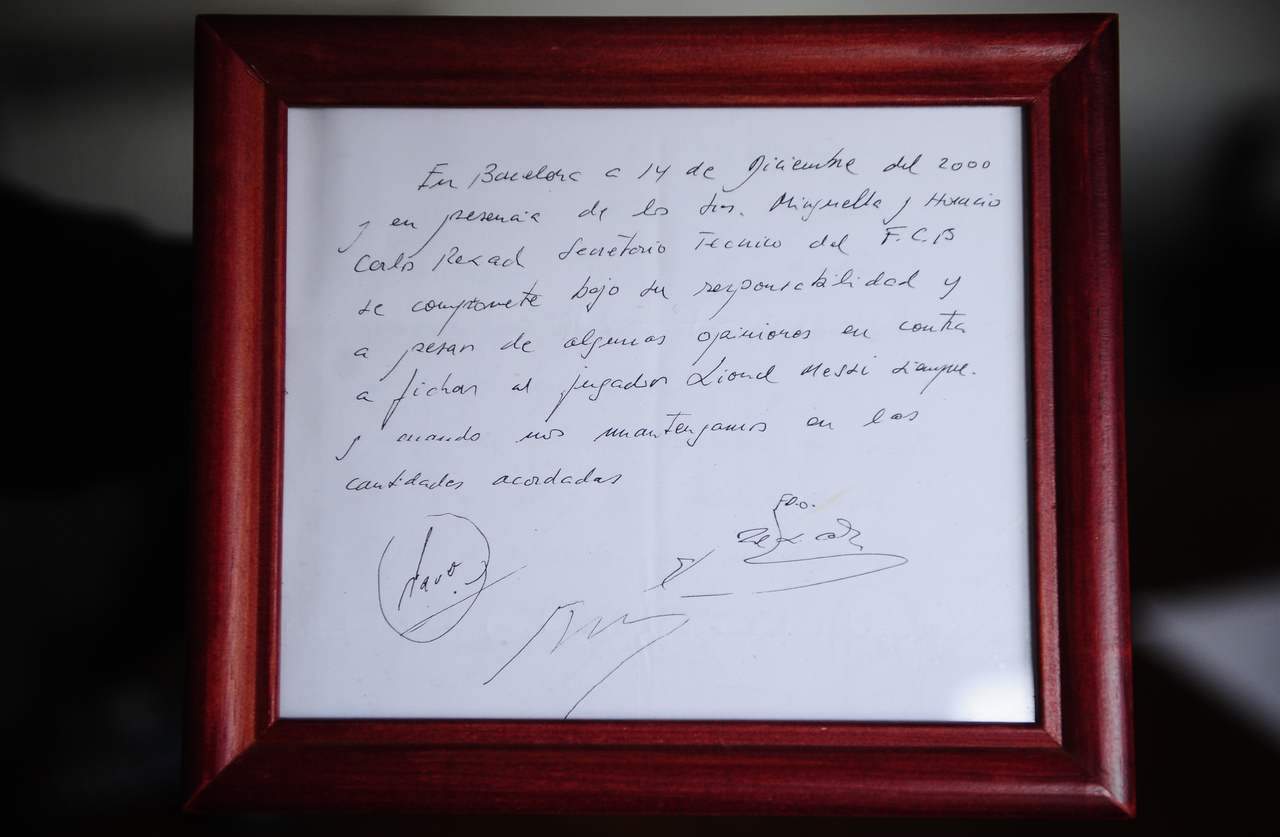 En Barcelona a 14 de Diciembre del 2000
y en presencia de los Srs. Minguella y Horacio
Carlos Rexach Secretario Tecnico del F.C.B
se compromete bajo su responsabilidad y
a pesar de algunas opiniones en contra
a fichar al jugador Lionel Messi siempre.
y cuando nos mantengamos en las
cantidades acordadas
FDO.